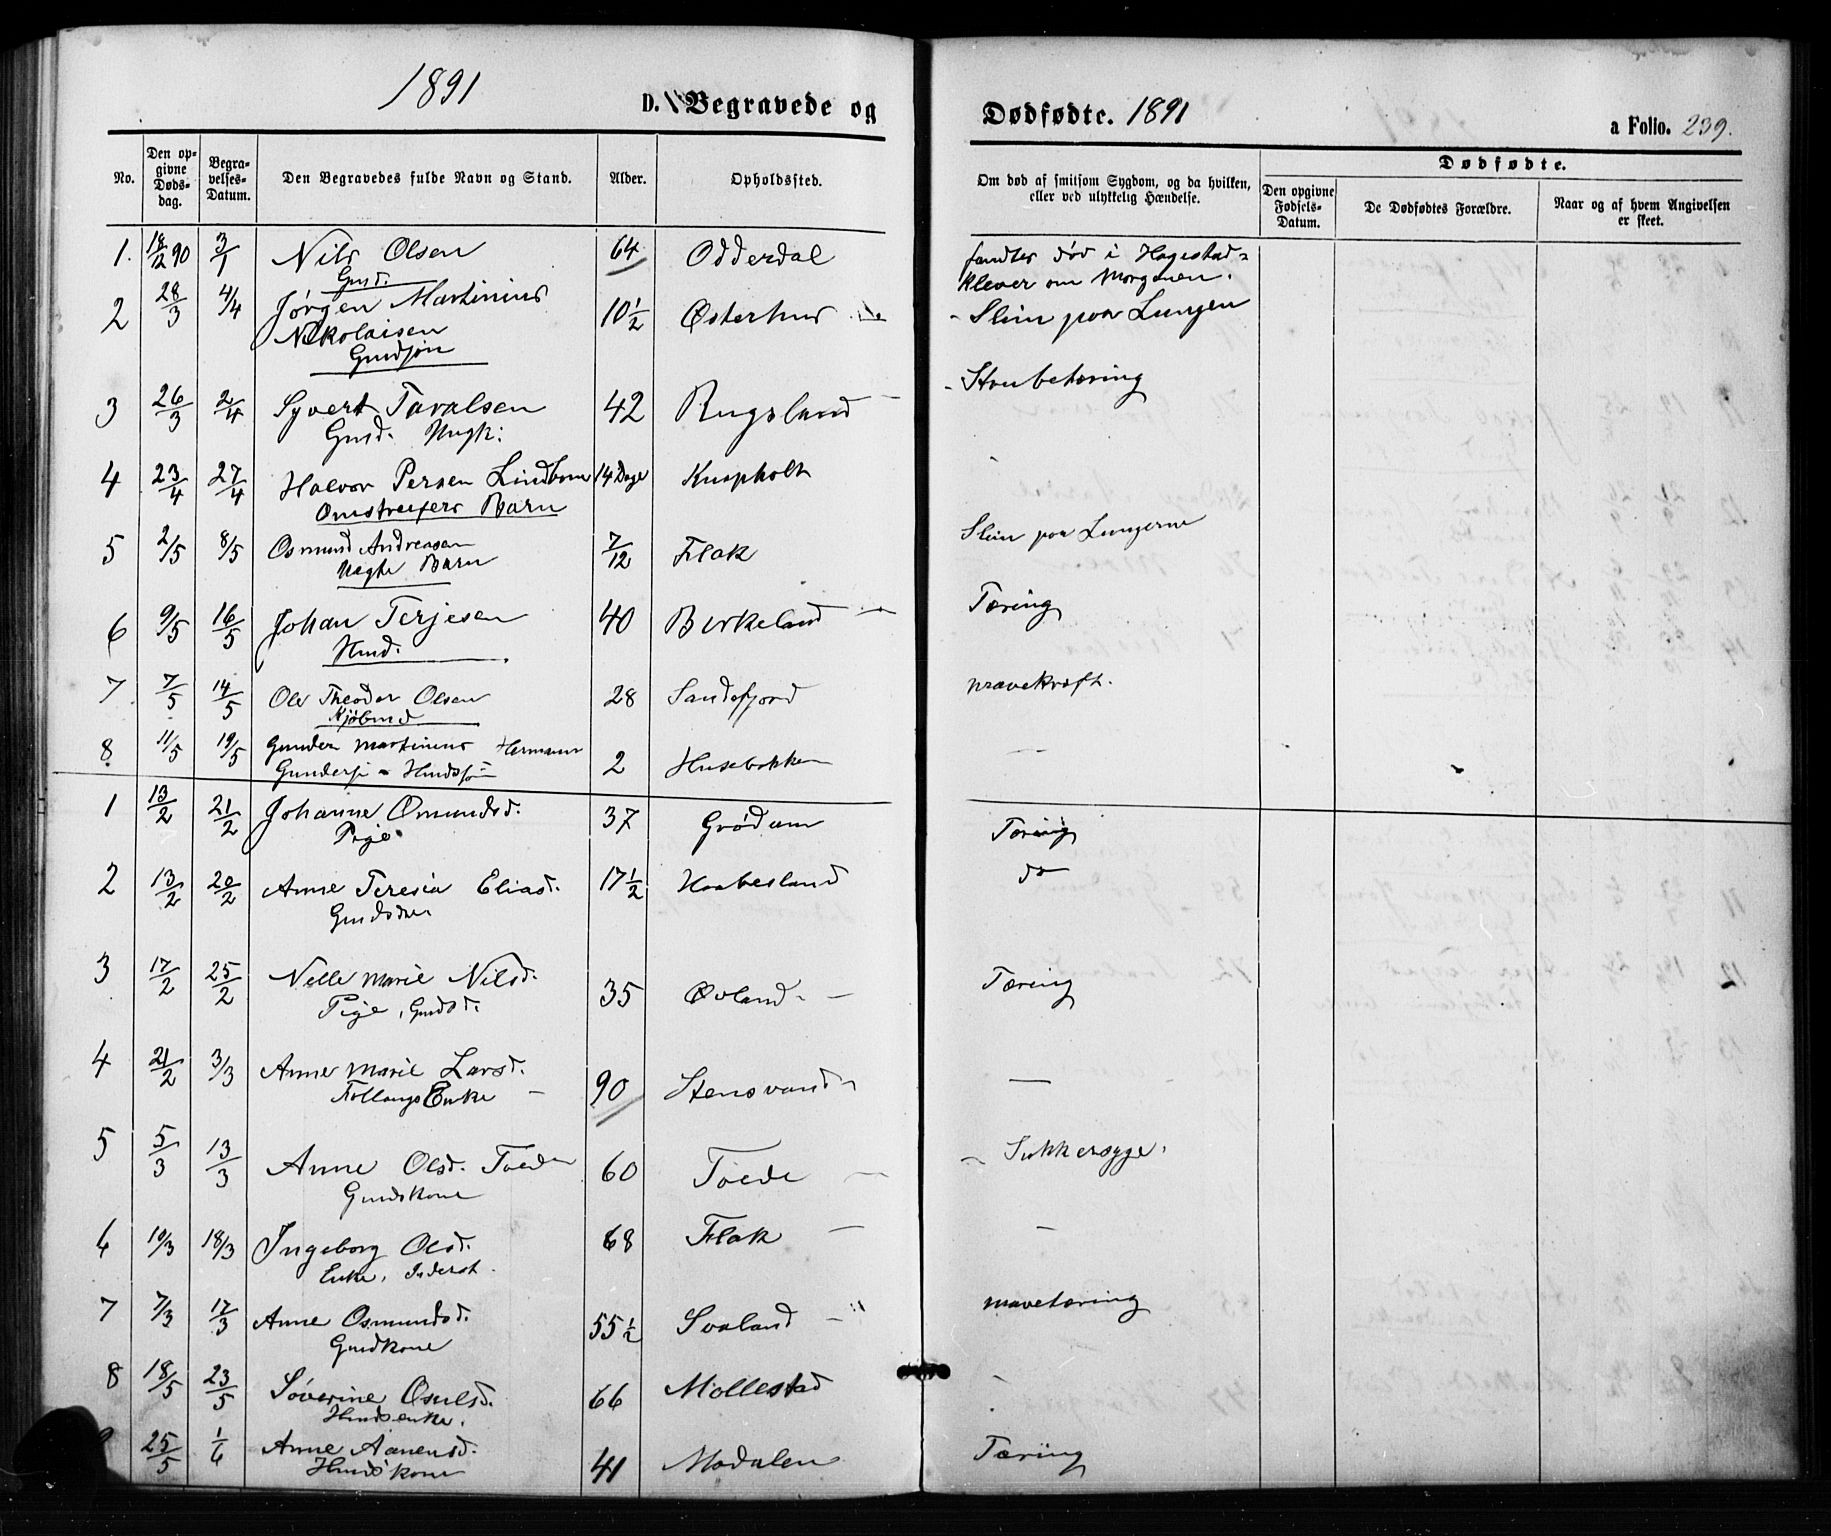 1891
D. Begravede og
Dødfødte. 1891
a Folio. 239.
No.
Den opgivne Dødsdag.
Begravelses-Datum.
Den Begravedes fulde Navn og Stand.
Alder.
Opholdssted.
Om død af smitsom Sygdom, og da hvilken, eller ved ulykkelig Hændelse.
Dødfødte.
Den opgivne Fødsels-Datum.
De Dødfødtes Forældre.
Naar og af hvem Angivelsen er skeet.
1. 18/12 90 3/1 Nils Olsen 64 Odderdal fandtes død i Hagestad-
Gmd. klever om Morgenen.
2 28/3 4/4 Jørgen Martinius 10 1/2 Østerhus - Slim paa Lungen
Nikolaisen
Gmdsøn
3 26/3 2/4 Syvert Tavalsen 42 Rugsland - Strubetæring
Gmd. Ungk:
4 23/4 27/4 Halvor Persen Lindbom 14 Dage Knapholt
Omstreifers Barn
5 2/5 8/5 Osmund Andreasen 7/12 Flak Slim paa Lungerne
Uægte Barn
6 9/5 16/5 Johan Terjesen 40 Birkeland Tæring
Hmd.
7 7/5 14/5 Ole Theodor Olsen 28 Sandefjord
Kjøbmd
8. 11/5 19/5 Gunder Martinius Hermann 2 Husebakken —
Hmdssøn
1 13/2 21/2 Johanne Osmundsd. 37 Grødum Tæring
Pige
2 13/2 20/2 Anne Teresia Eliasd. 17 1/2 Haabesland do
Gmdsdtr
3 17/2 25/2 Nelle Marie Nilsd. 35 Øvland - Tæring
Pige, Gmdsd.
4 21/2 3/3 Anne Marie Larsd. 90 Stensvand —
Enke
5 5/3 13/3 Anne Olsd. Toede 60 Toede - Sukkersyge.
Gmdskone
6 10/3 18/3 Ingeborg Olsd. 68 Flak —
Enke, Inderst.
7 7/3 17/3 Anne Osmundsd. 55 1/2 Svaland - mavetæring
Gmdkone
8 18/5 23/5 Søverine Osulsd. 66 Mollestad
Hmdsenke.
25/5 1/6 Anne Aanensd. 41 Modalen Tæring
Hmdskone